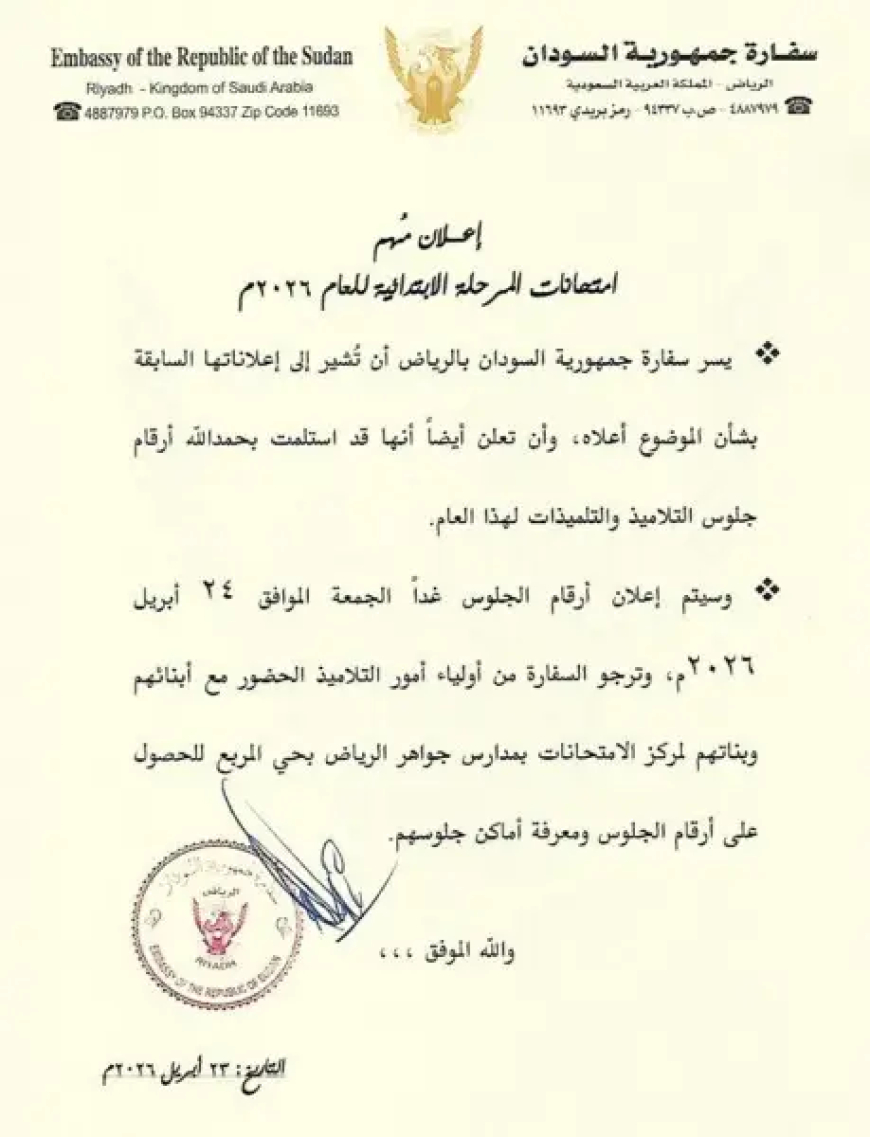 Embassy of the Republic of the Sudan
Riyadh - Kingdom of Saudi Arabia
☎ 4887979 P.O. Box 94337 Zip Code 11693
سفارة جمهورية السودان
الرياض - المملكة العربية السعودية
☎ ٤٨٨٧٩٧٩ - ص.ب ٩٤٣٣٧ - رمز بريدي ١١٦٩٣
إعلان مُهم
امتحانات المرحلة الابتدائية للعام ٢٠٢٦م
❖ يسر سفارة جمهورية السودان بالرياض أن تُشير إلى إعلاناتها السابقة
بشأن الموضوع أعلاه، وأن تعلن أيضاً أنها قد استلمت بحمدالله أرقام
جلوس التلاميذ والتلميذات لهذا العام.
❖ وسيتم إعلان أرقام الجلوس غداً الجمعة الموافق ٢٤ أبريل
٢٠٢٦م، وترجو السفارة من أولياء أمور التلاميذ الحضور مع أبنائهم
وبناتهم لمركز الامتحانات بمدارس جواهر الرياض بحي المربع للحصول
على أرقام الجلوس ومعرفة أماكن جلوسهم.
سفارة جمهورية السودان
الرياض
RIYADH
EMBASSY OF THE REPUBLIC OF SUDAN
والله الموفق ،،،
التاريخ: ٢٣ أبريل ٢٠٢٦م